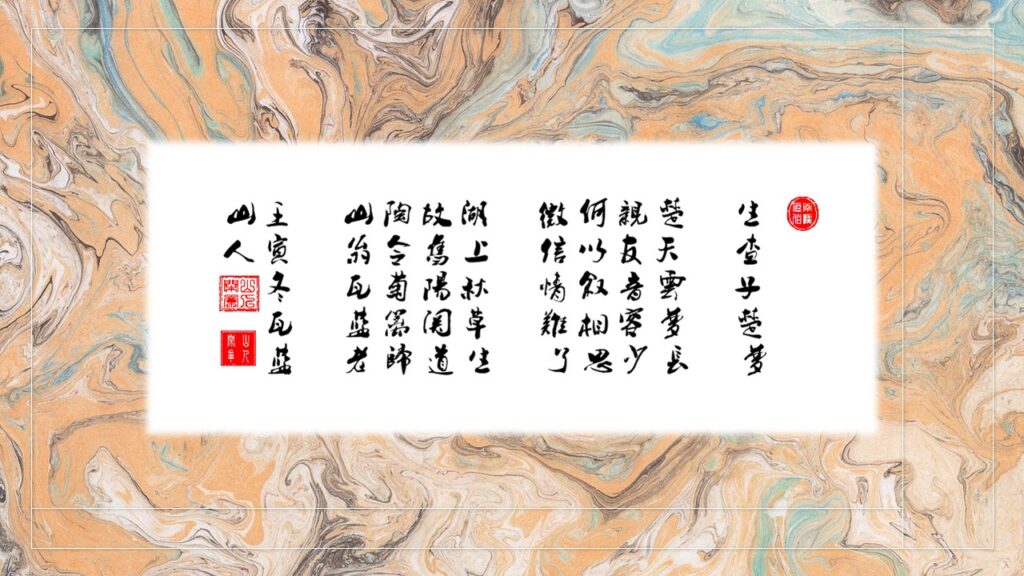 生查子 楚夢
楚天雲夢長
親友音容少
何以叙相思
微信情難了
湖上秋草生
故舊陽関道
陶令菊篱歸
山翁瓦藍老
壬寅冬瓦藍
山人